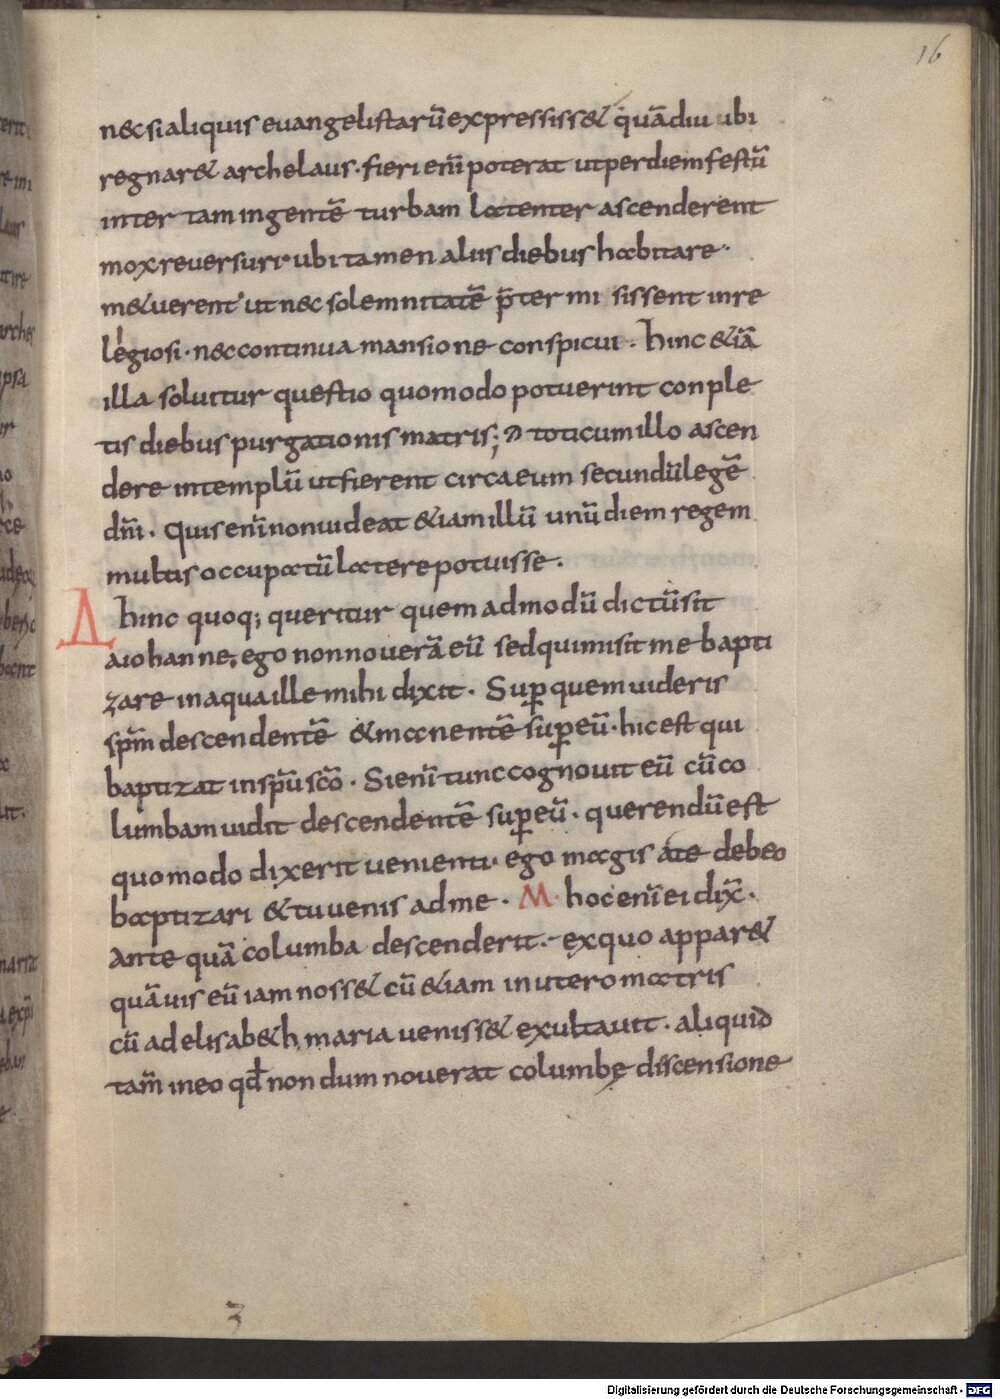 16
nec si aliquis euangelistarū expressiss& quādiu ubi
regnar& archelaus · fieri enī poterat ut per diem festū
inter tam ingentē turbam latenter ascenderent
mox reuersuri ubi tamen aliis diebus habitare ·
m&uerent ut nec solemnitatē p̄ter mi sissent inre
legiosi · nec continua mansione conspicui · hinc &iā
illa soluitur questio quomodo potuerint conple
tis diebus purgationis matris; toti cum illo ascen
dere in templū ut fierent circa eum secundū legē
dn̄i · Quis enī non uideat &iam illū unū diem regem
multis occupatū latere potuisse ·
Ad hinc quoq; queritur quem ad modū dictū sit
a iohanne, ego non nouerā eū sed qui misit me bapti
zare in aqua ille mihi dixit · Sup̱ quem uideris
sp̄m descendentē & manentē sup̱ eū · hic est qui
baptizat in sp̄u sc̄o · Si enī tunc cognouit eū cū co
lumbam uidit descendentē sup̱ eū · querendū est
quomodo dixerit uenienti · ego magis a te debeo
baptizari & tu uenis ad me · M · hoc enī ei dix̄ ·
Ante quā columba descenderit · ex quo appar&
quāuis eū iam noss& cū &iam in utero matris
cū ad elisab&h maria ueniss& exultauit · aliquid
tam̄ in eo qd̄ non dum nouerat columbę discensione
3
Digitalisierung gefördert durch die Deutsche Forschungsgemeinschaft - DFG